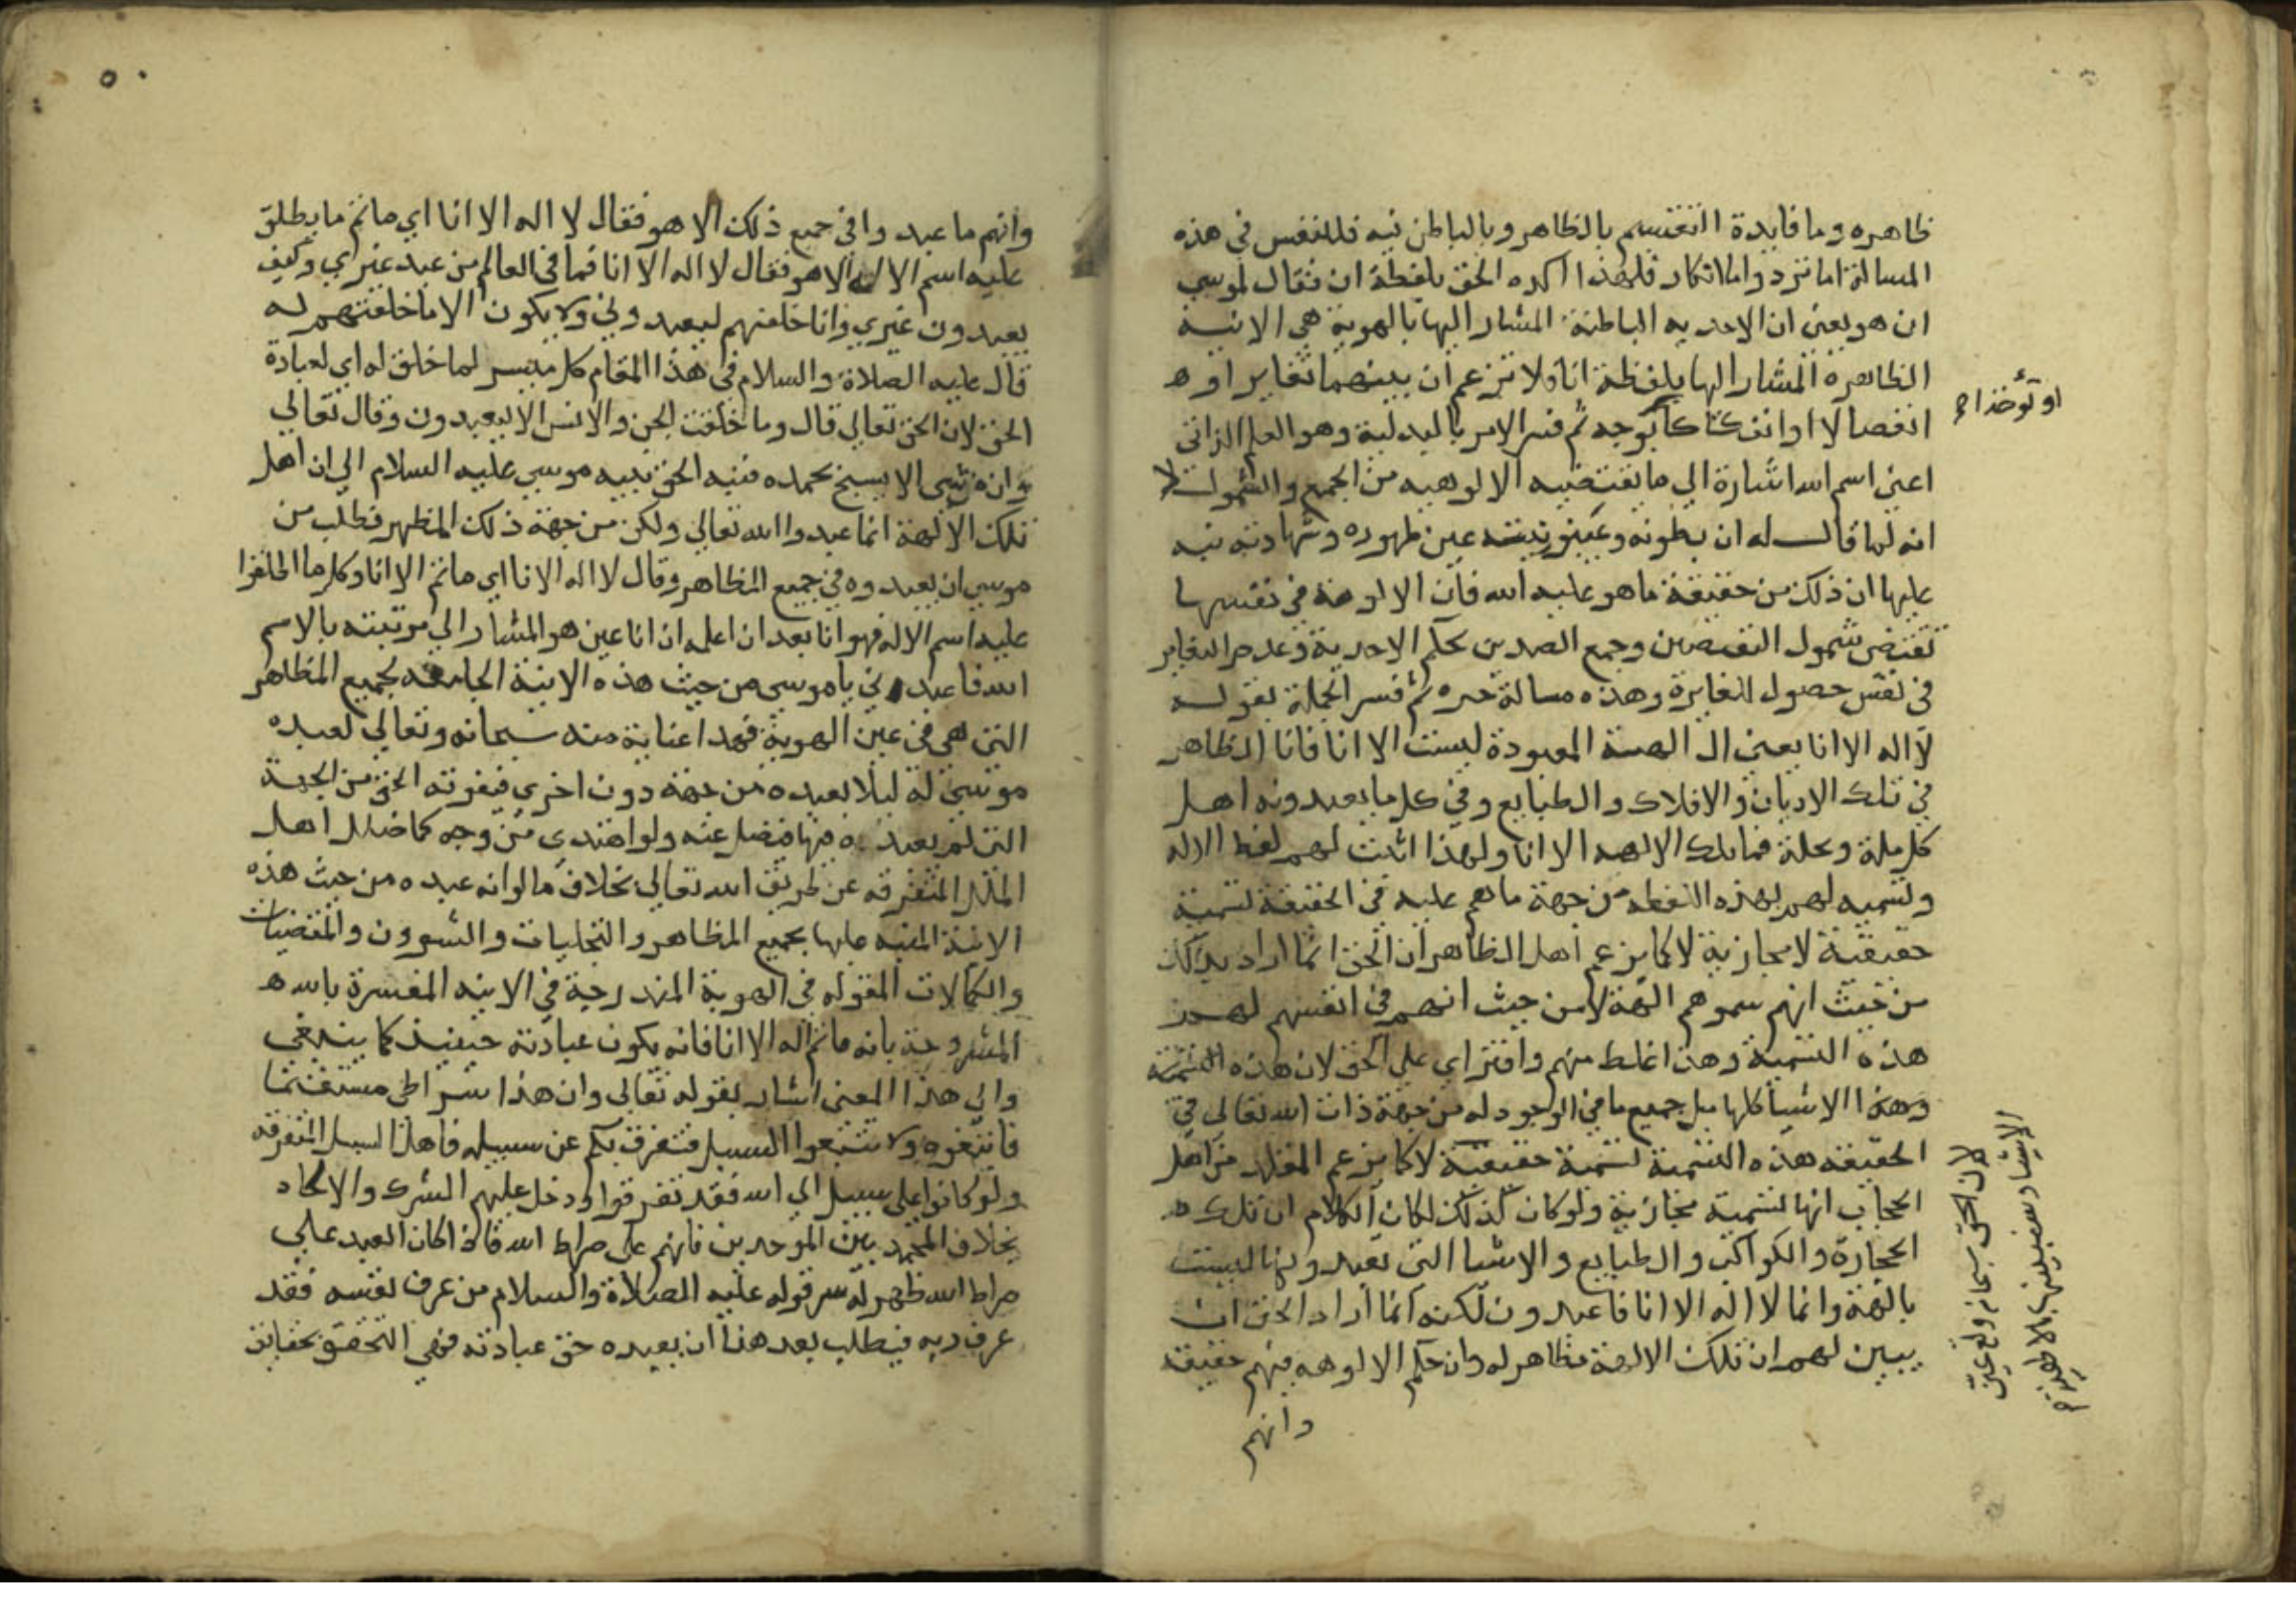 ظاهره وما فايدة التقسيم بالظاهر وبالباطن فيه فللنفس في هذه
المسالة اما تردد واما انكار فلهذا اكده الحق بلفظة ان فقال لموسي
ان هو يعني ان الاحديه الباطنة المشار اليها بالهوية هي الانية
الظاهره المشار اليها بلفظة انا فلا تزعم ان بينهما تغاير او
انفصالا او انفكاكا بوجه ثم فسر الامر بالبدلية وهو العلم الذاتي
اعني اسم الله اشارة الي ما يقتضيه الالوهيه من الجمع والشمول لا
انه لما قال له ان بطونه وغيبوبيته عين ظهوره وشهادته نبه
عليها ان ذلك من حقيقة ما هو عليه الله فان الالوهة في نفسها
تقتضي شمول النقيضين وجمع الضدين بحكم الاحدية وعدم التغاير
في نفس حصول المغايرة وهذه مسالة حيره ثم فسر الجملة بقوله
لا اله الا انا يعني ال الهية المعبودة ليست الا انا فانا الظاهر
في تلك الاديان والافلاك والطبايع وفي كل ما يعبدونه اهل
كل ملة ونحلة فما تلك الالهه الا انا ولهذا اثبت لهم لفظ الاله
وتسميه لهم بهذه اللفظه من جهة ما هم عليه في الحقيقة تسمية
حقيقية لا مجازية لا كما يزعم اهل الظاهر ان الحق انما اراد بذلك
من حيث انهم سموهم الهة لا من حيث انهم في انفسهم لهم
هذه التسمية وهذا غلط منهم وافتراي علي الحق لان هذه التسمية
وهذا الاشيا كلها بل جميع ما في الوجود له من جهة ذات الله تعالي في
الحقيقه هذه التسمية تسمية حقيقية لا كما يزعم المقلد من اهل
الحجاب انها تسمية مجازية ولو كان كذلك لكان الكلام ان تلك
الحجارة والكواكب والطبايع والاشيا التي تعبدونها ليست
بالهة وانما لا اله الا انا فاعبدون لكنه انما اراد الحق ان
يبين لهم ان تلك الالهة مظاهر له وان حكم الالوهه فيهم حقيقة
وانهم
او تؤخذا
لان الحق سبحانه وتع عين
الاشيا
وانهم ما عبدوا في جميع ذلك الا هو فقال لا اله الا انا اي ما ثم ما يطلق
عليه اسم الاله الا هو فقال لا اله الا انا فما في العالم من عبد غيري وكيف
يعبدون غيري وانا خلقتهم ليعبدوني ولا يكون الا ما خلقتهم له
قال عليه الصلاة والسلام في هذا المقام كل ميسر لما خلق له اي لعبادة
الحق لان الحق تعالي قال وما خلقت الجن والانس الا ليعبدون وقال تعالي
وان من شي الا يسبح بحمده فنبه الحق نبيه موسي عليه السلام الي ان اهل
تلك الالهة انما عبدوا الله تعالي ولكن من جهة ذلك المظهر فطلب من
موسي ان يعبدوه في جميع المظاهر وقال لا اله الا انا اي ما ثم الا انا وكل ما اطلقوا
عليه اسم الاله فهو انا بعد ان اعلمه ان انا عين هو المشار الي مرتبته بالاسم
الله فاعبدني يا موسي من حيث هذه الانية الجامعه لجميع المظاهر
التي هي في عين الهوية فهذا عناية منه سبحانه وتعالي لعبده
موسي له ليلا يعبده من جهة دون اخري فيفوته الحق من الجهة
التي لم يعبده منها فضل عنه ولو اهتدى من وجه كما ضلل اهل
الملل المتفرقه عن طريق الله تعالي بخلاف ما لو انه عبده من حيث هذه
الانية المنبه عليها بجميع المظاهر والتجليات والشوون والمقتضيات
والكمالات المقوله في الهوية المندرجة في الانيه المفسرة بالله
المشروحة بانه ما ثم اله الا انا فانه يكون عبادته حينيذ كما ينبغي
والي هذا المعني اشار بقوله تعالي وان هذا صراطي مستقيما
فاتبعوه ولا تتبعوا السبيل فتفرق بكم عن سبيله فاهل السبل المتفرقه
ولو كانوا علي سبيل الي الله فقد تفرقوا ودخل عليهم الشرك والالحاد
بخلاف المحمديين الموحدين فانهم علي صراط الله فاذا كان العبد علي
صراط الله ظهر له سر قوله عليه الصلاة والسلام من عرف نفسه فقد
عرف ربه فيطلب بعد هذا ان يعبده حق عبادته فهي التحقق بحقايق